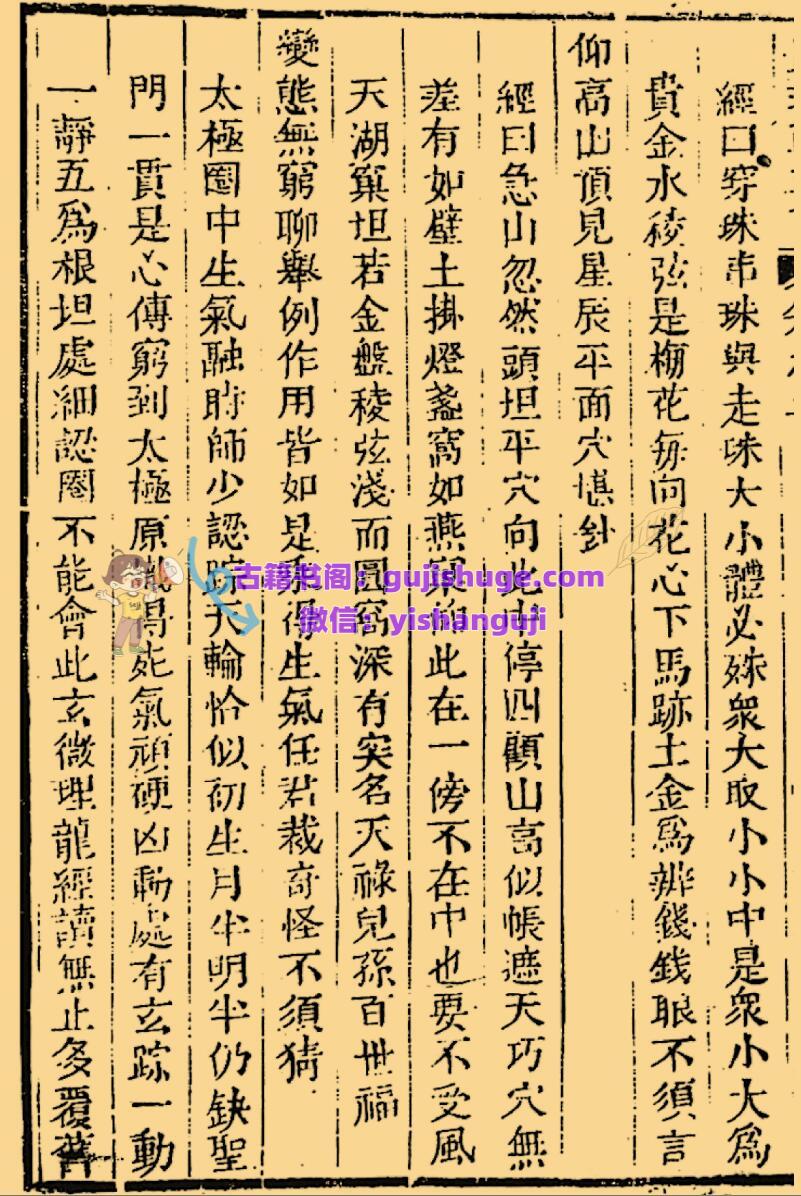 經曰穿珠串珠與走珠大小體必殊衆大取小小中是衆小大爲
貴金水稜弦是梅花每向花心下馬跡土金爲辨錢錢眼不須言
仰高山頂見星辰平面穴堪針
經曰急山忽然頭坦平穴向此中停四顧山高似帳遮天巧穴無
差有如壁土掛燈盞窩如燕巢此在一傍不在中也要不受風
天湖窠坦若金盤稜弦淺而圓窩深有突名天祿兒孫百世福
變態無窮聊舉例作用皆如是系得生氣任君裁奇怪不須猜
太極圈中生氣融時師少認踪天輪恰似初生月半明半仍缺聖
門一貫是心傳窮到太極原氣得死氣頑硬凶動處有玄踪一動
一靜五爲根坦處細認圈不能會此玄微理龍經讀無止多覆舊
古籍书阁：gujishuge.com
微信：yishanguji